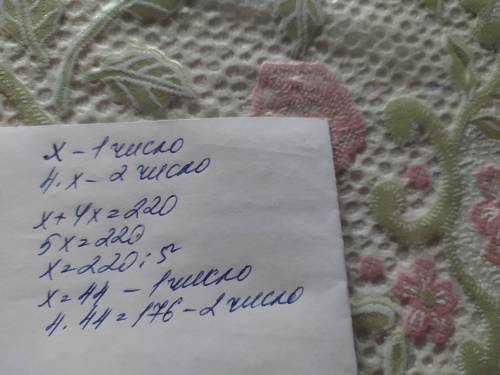 x - 1 число
4·x - 2 число
x+4x=220
5x=220
x=220:5
x=44 - 1 число
4·44=176 - 2 число